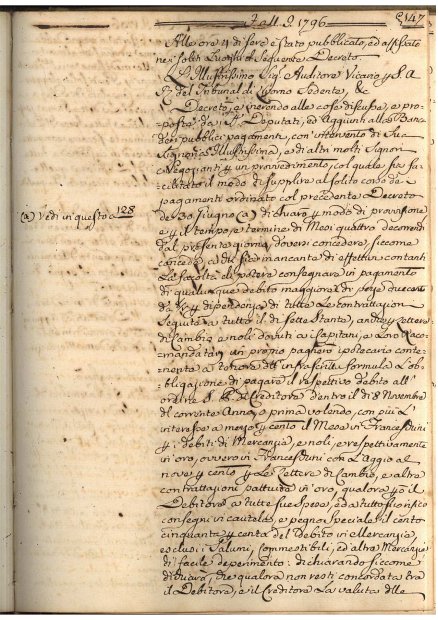 Dall 9. 1796
147
Alle ore 4 di sera è stato pubblicato, ed affissato
nei soliti Luoghi il Sequente Decreto
L'Illustrissimo Sig. Auditore Vicario
del Tribunal di Livorno Sedente, &c
Decretò, inerendo alle cose discusse, e pro=
=poste da Deputati, ed Aggiunti alla Ban=
pubblici pagamenti, con intervento di Sua
Signoria Illustrissima, e di altri molti Signori
Negozianti un provvedimento, col quale sia fa=
=cilitato il modo di supplire al solito corso de
pagamenti ordinato col precedente Decreto
(a) Vedi in questo a 128
de 30 Giugno (a) dichiarò modo di provvisione
e tempo, e termine di Mesi quattro decorrendi
dal presente giorno doversi concedere siccome
concede a di mancante di effettivi contanti
La facoltà di potere consegnare in pagamento
di qualunque debito maggiore di pezze duecento
dipendenza di tutte Le contrattazioni
Seguite a tutto il di sette Stante, anche Lettere
di Cambio, e noli dovuti a i Capitani, e Loro Racco=
=mandatari un proprio paghero ipotecario conte=
=nente a tenore dell' infrascritta formula L'ob=
=bligazione di pagare il respettivo debito all'
ordine Creditore dentro il di 8 Novembre
del corrente Anno, o prima volendo, con più L'
interesse a mezzo cento il Mese in Francesconi
i debiti di Mercanzie, e noli, e respettivamente
in oro, ovvero in Francesconi con L'Aggio al
nove cento Le Lettere di Cambio, e altre
contrattazioni pattuite in oro, qualora il
Debitore a tutte sue Spese, ed a tutto suo risico
consegni in cautela, e pegno Speciale il cento
cinquanta cento del Debito in Mercanzie,
esclusi i Salumi, Commestibili, ed altre Mercanzie
di facile deperimento: dichiarando siccome
dichiarò, che qualora non resti concordata tra
il Debitore, e il Creditore La valuta delle